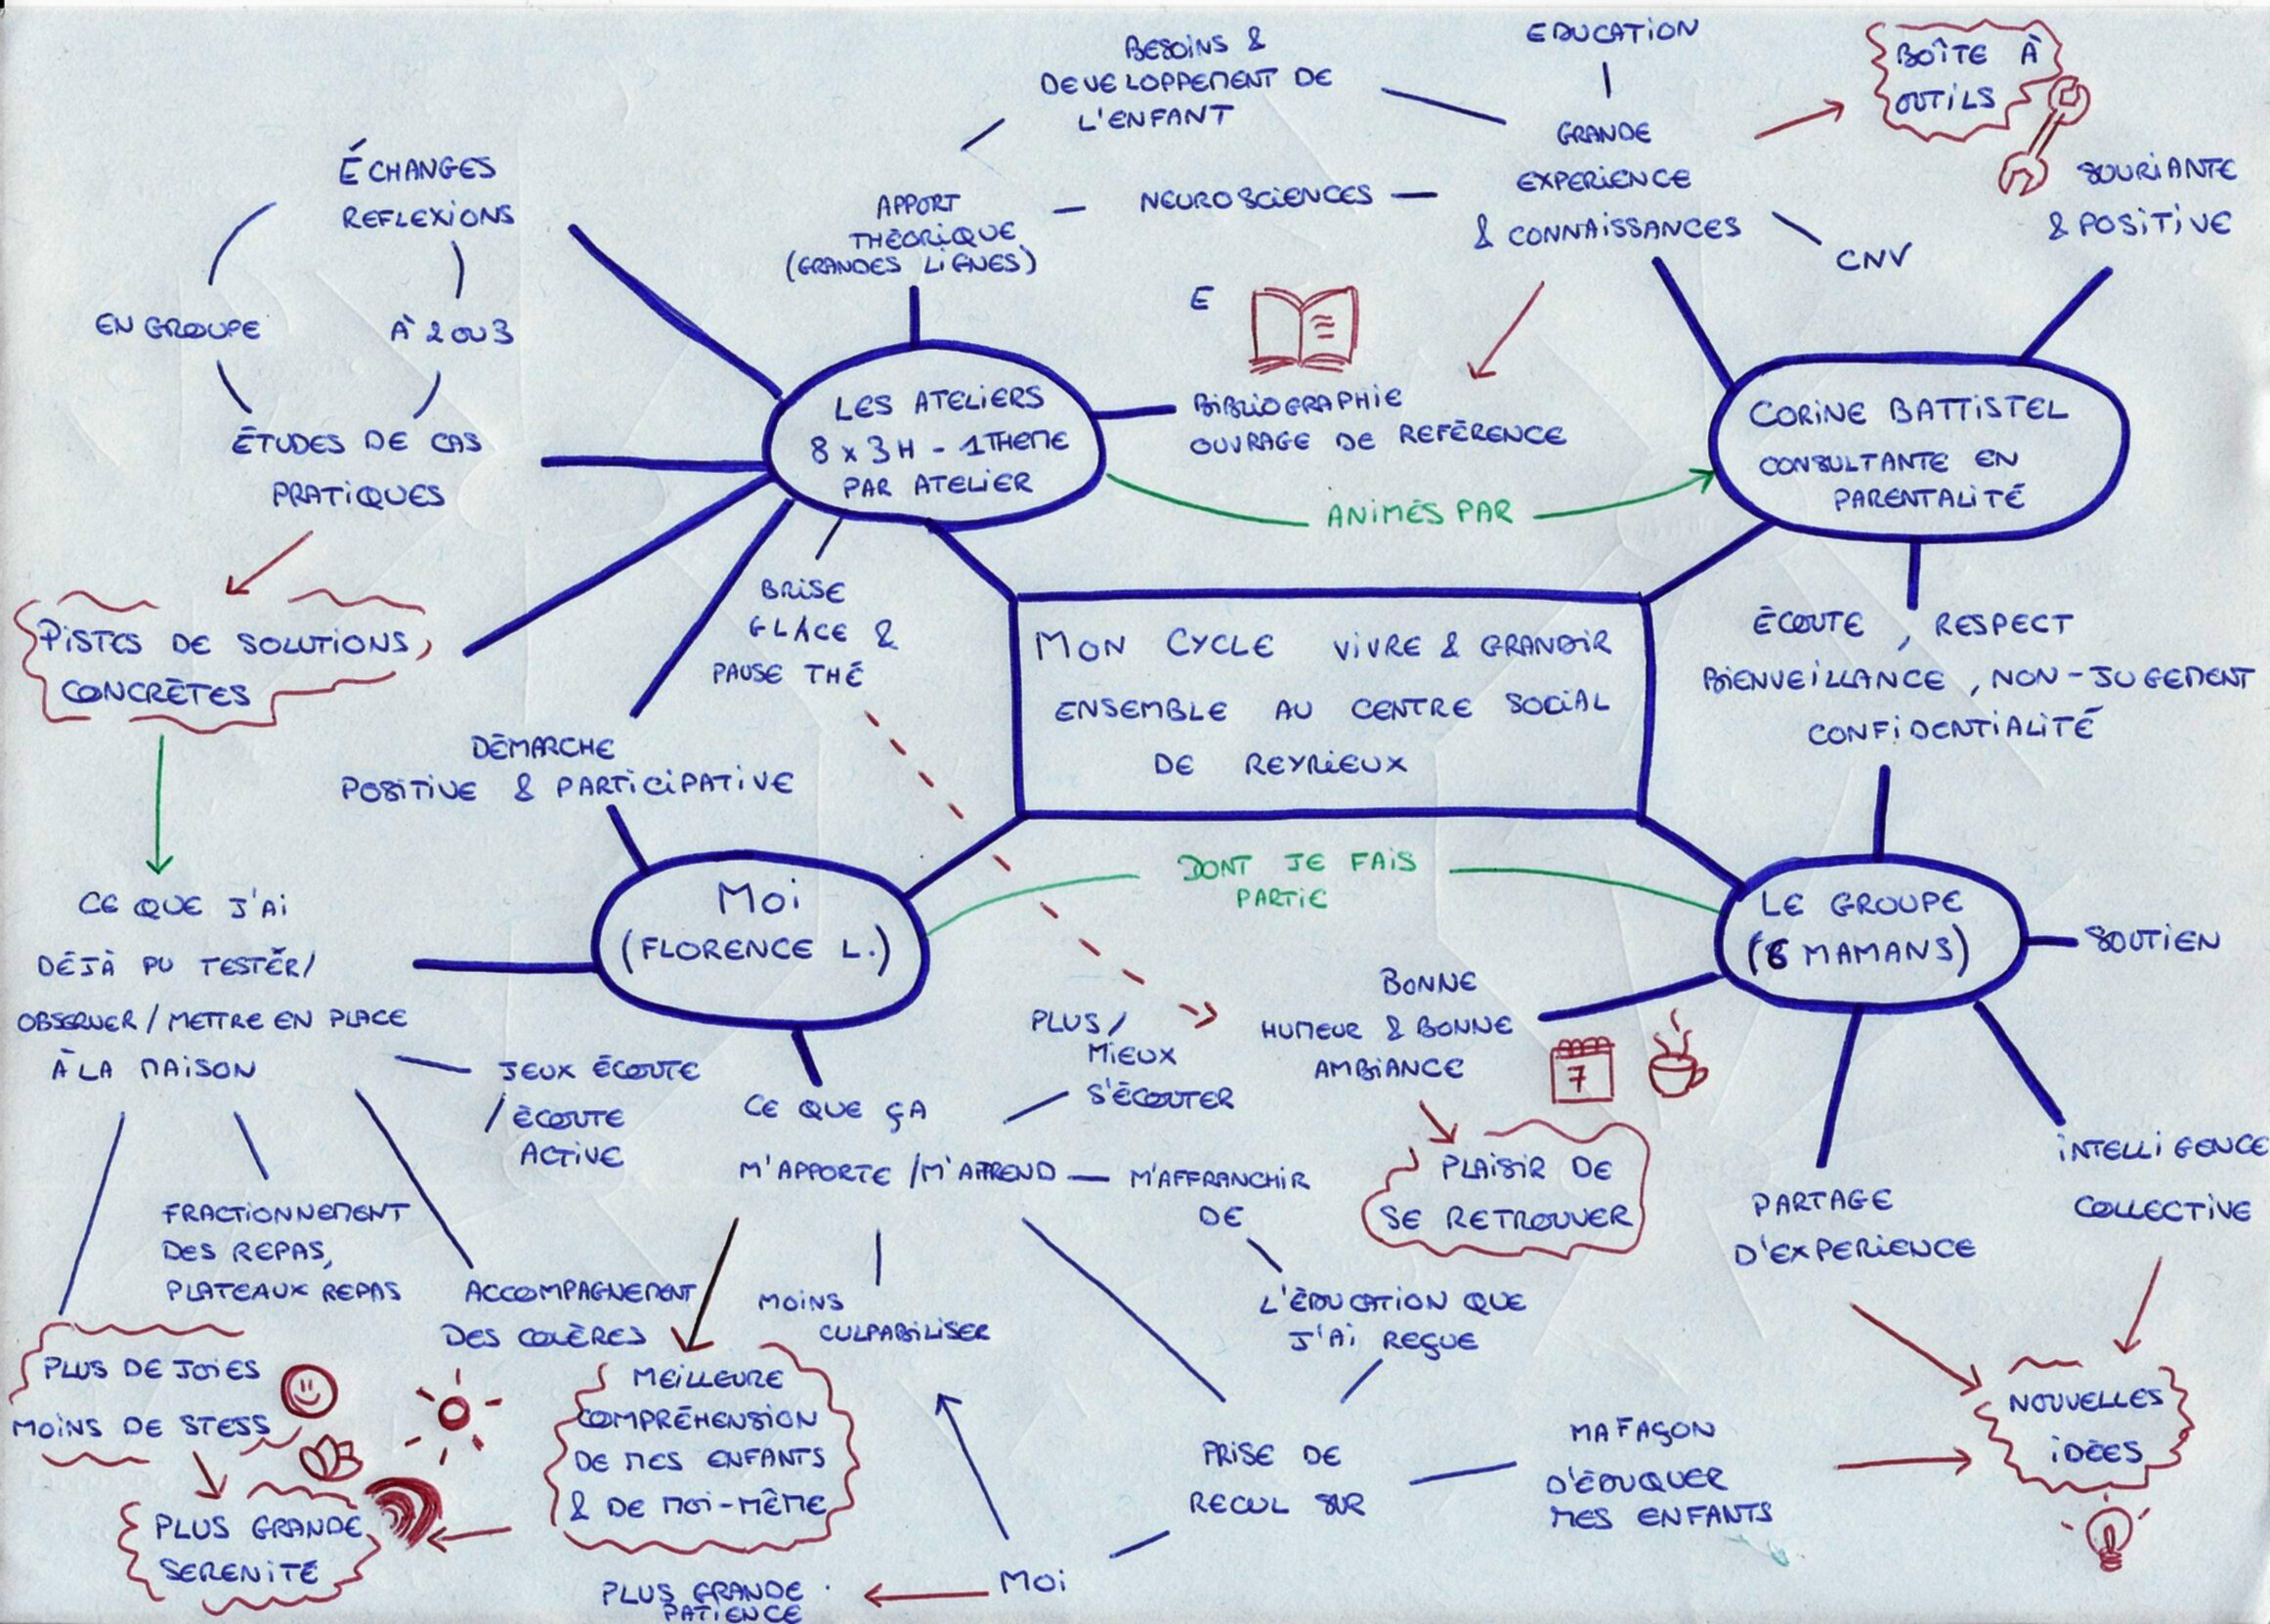 BESOINS &
DEVELOPPEMENT DE
L'ENFANT
EDUCATION
BOÎTE À
OUTILS
GRANDE
EXPERIENCE
& CONNAISSANCES
SOURIANTE
& POSITIVE
CNV
NEUROSCIENCES
APPORT
THÉORIQUE
(GRANDES LIGNES)
ÉCHANGES
REFLEXIONS
EN GROUPE
À 2 OU 3
ÉTUDES DE CAS
PRATIQUES
E
LES ATELIERS
8 x 3H - 1 THEME
PAR ATELIER
BIBLIOGRAPHIE
OUVRAGE DE REFÉRENCE
ANIMÉS PAR
CORINE BATTISTEL
CONSULTANTE EN
PARENTALITÉ
PISTES DE SOLUTIONS
CONCRÈTES
BRISE
GLACE &
PAUSE THÉ
MON CYCLE VIVRE & GRANDIR
ENSEMBLE AU CENTRE SOCIAL
DE REYRIEUX
ÉCOUTE, RESPECT
BIENVEILLANCE, NON-JUGEMENT
CONFIDENTIALITÉ
DÉMARCHE
POSITIVE & PARTICIPATIVE
MOI
(FLORENCE L.)
DONT JE FAIS
PARTIE
LE GROUPE
(6 MAMANS)
SOUTIEN
CE QUE J'AI
DÉJÀ PU TESTER/
OBSERVER / METTRE EN PLACE
À LA MAISON
JEUX ÉCOUTE
/ ÉCOUTE
ACTIVE
PLUS/
MIEUX
S'ÉCOUTER
BONNE
HUMEUR & BONNE
AMBIANCE
7
CE QUE ÇA
M'APPORTE / M'APPREND
M'AFFRANCHIR
DE
PLAISIR DE
SE RETROUVER
PARTAGE
D'EXPERIENCE
INTELLIGENCE
COLLECTIVE
FRACTIONNEMENT
DES REPAS,
PLATEAUX REPAS
ACCOMPAGNEMENT
DES COLÈRES
MOINS
CULPABILISER
L'ÉDUCATION QUE
J'AI REÇUE
PLUS DE JOIES
MOINS DE STESS
MEILLEURE
COMPRÉHENSION
DE MES ENFANTS
& DE MOI-MÊME
PRISE DE
RECUL SUR
MA FAÇON
D'ÉDUQUER
MES ENFANTS
NOUVELLES
IDÉES
PLUS GRANDE
SERENITÉ
PLUS GRANDE
PATIENCE
MOI